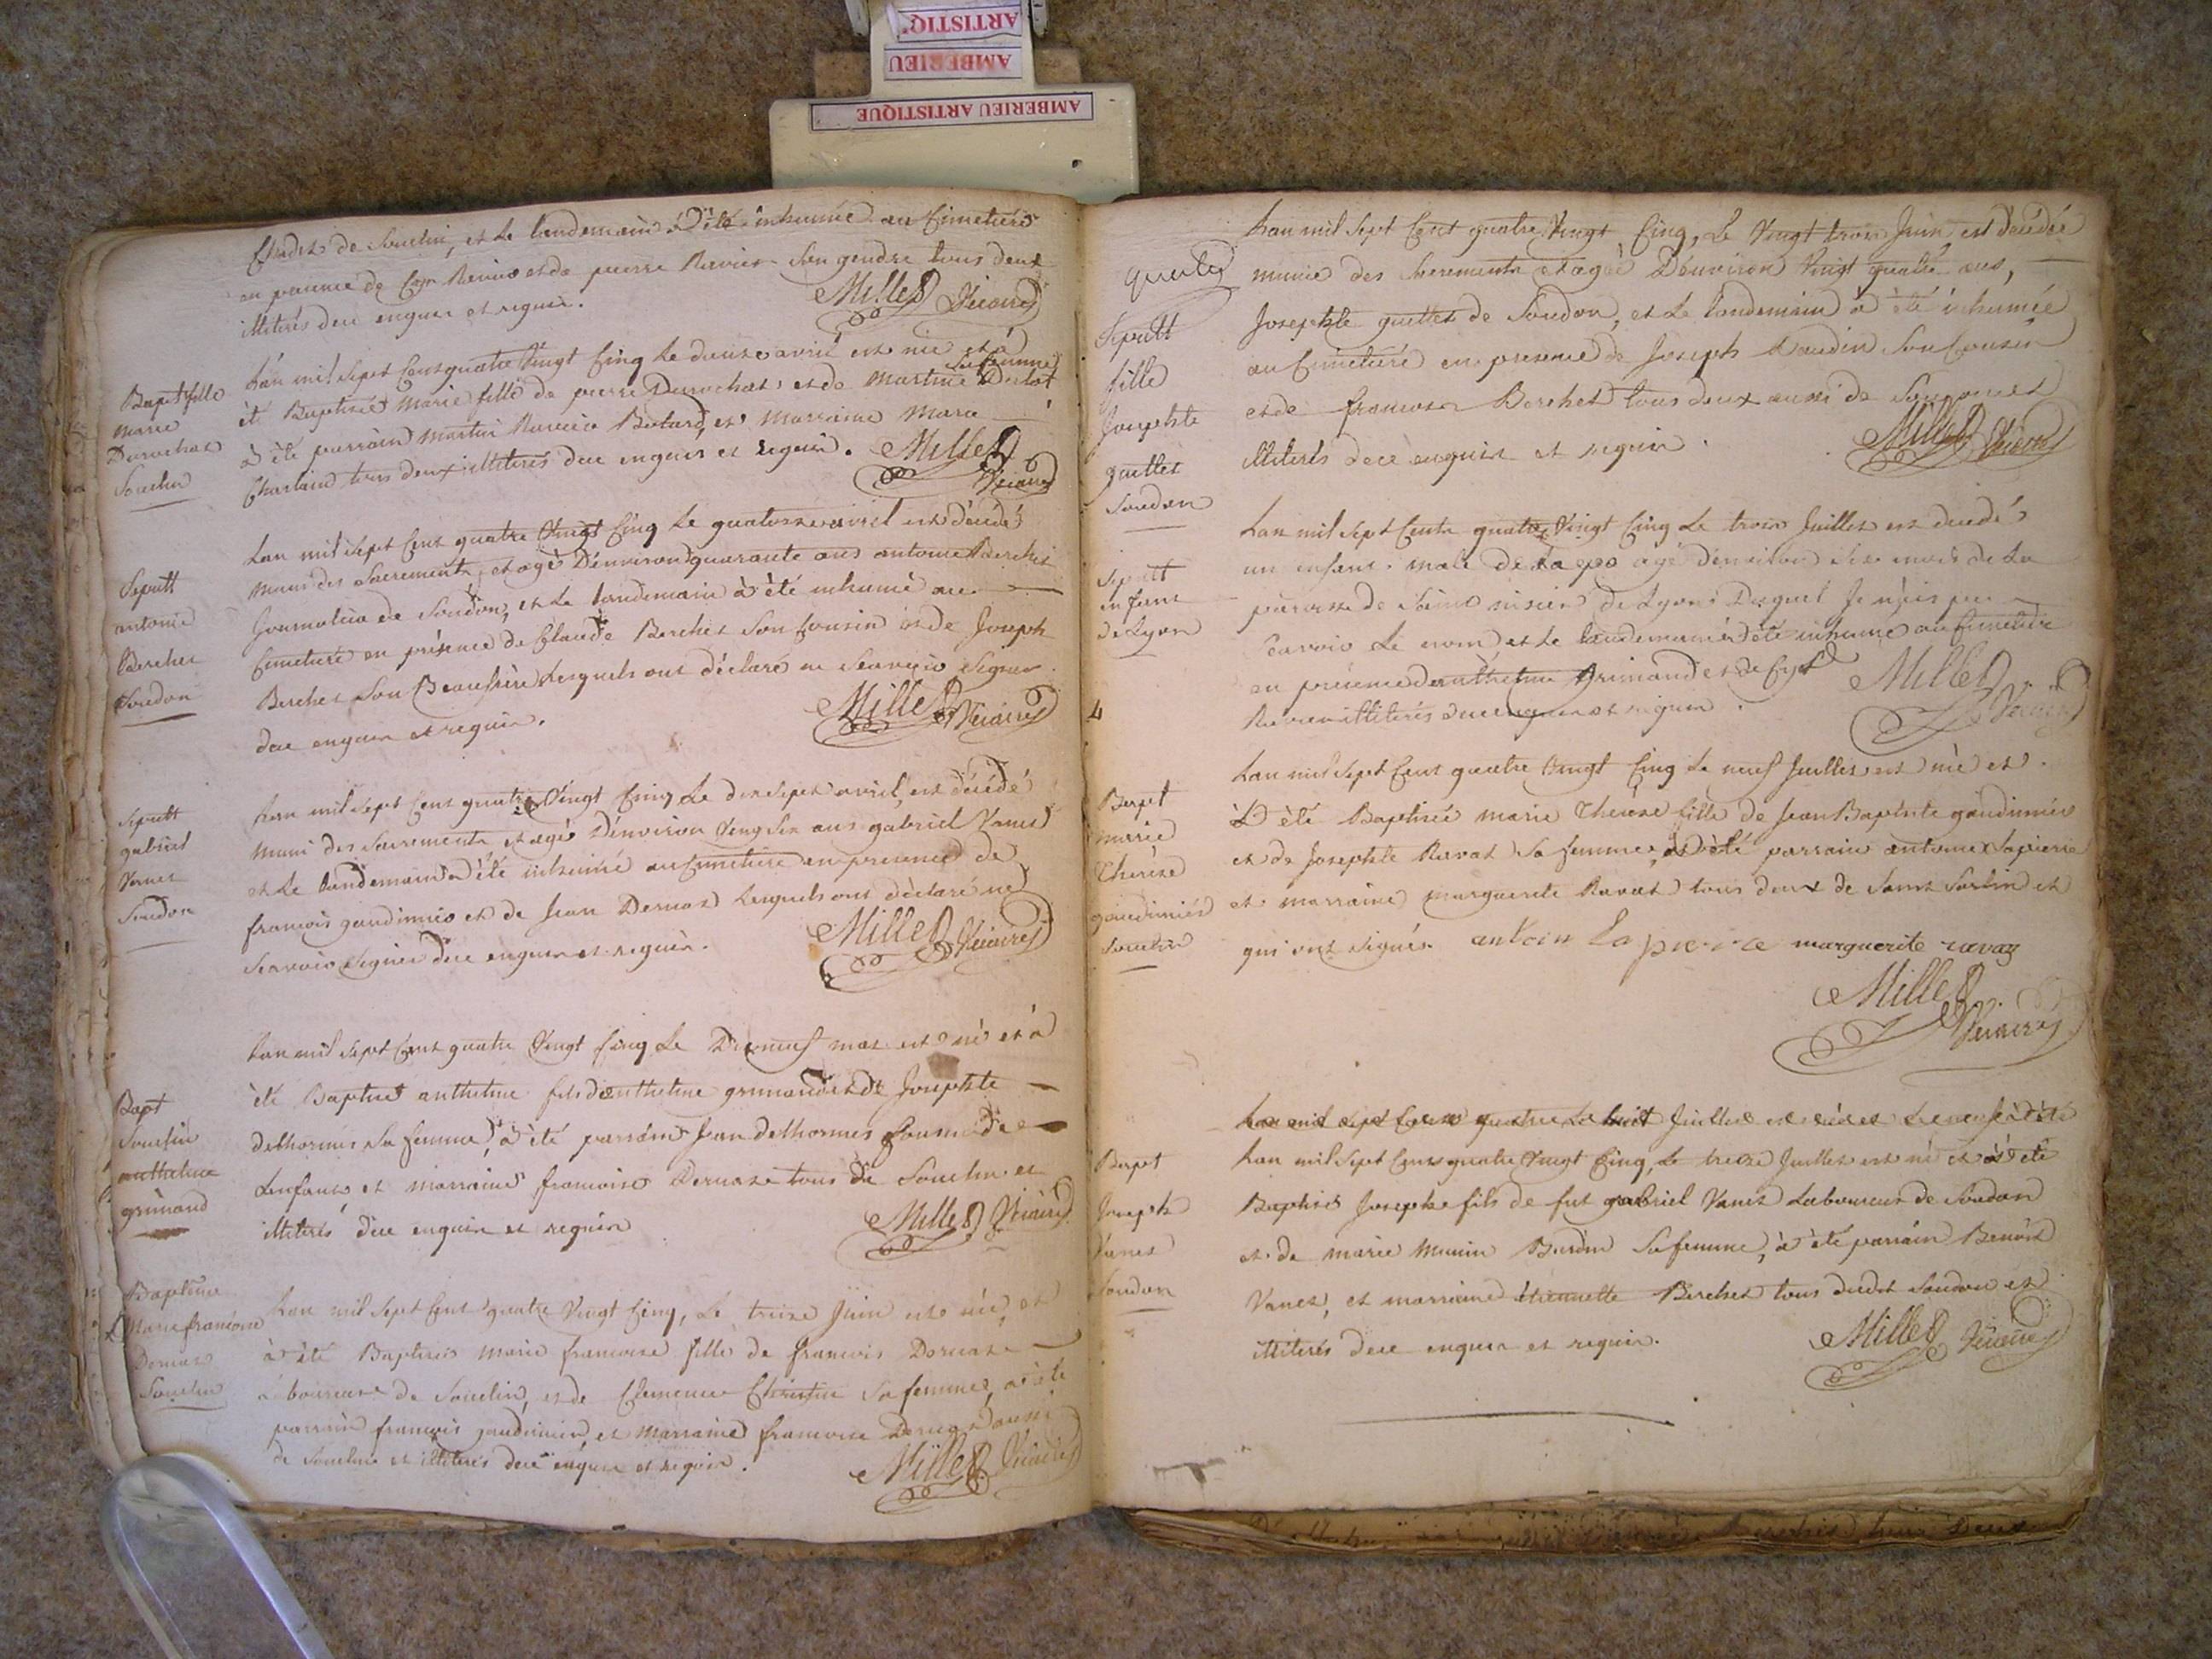 ARTISTIQ
AMBERIEU
AMBERIEU ARTISTIQUE
de Souclin, et le landemain à été inhumée au Cimetiere
en presence de et de pierre Ravier son gendre tous deux
illiterés dece enquis et requis. Millet Vicaire
Bapt fille
marie
Durochat
Souclin
L'an mil sept Cent quatre Vingt Cinq le douze avril est née et à
sa femme
été Baptisée marie fille de pierre Durochat et de martine
à été parrain martin Batard, et marraine marie
tous deux illiterés dece enquis et requis. Millet
Vicaire
Sepult
antoine
Berchet
Soudon
Lan mil sept Cent quatre Vingt Cinq le quatorze avril est décédé
muni des Sacrements, et agé D'environ quarante ans antoine Berchet
Journalier de Soudon, et Le landemain à été inhumé au
Cimetiere en présence de Claude Berchet Son Cousin et de Joseph
Berchet Son Beaufrère Lesquels ont déclaré ne Scavoir Signer
dece enquis et requis. Millet Vicaire
Sepult
gabriel
Vanet
Soudon
Lan mil sept Cent quatre Vingt Cinq Le dix sept avril, est décédé
muni des Sacrements et agé D'environ Vingt Six ans gabriel Vanet
et Le landemain à été inhumé au Cimetiere en presence de
francois gaudinnier et de Jean Dernaz Lesquels ont déclaré ne
Scavoir Signer dece enquis et requis. Millet Vicaire
Bapt
Souclin
anthelme
grimand
Lan mil sept Cent quatre Vingt Cinq Le Dixneuf mai est né et à
été Baptisé anthelme fils d'anthelme grimand et de Josephte
delhormes sa femme, à été parrain Jean delhormes Cousin de
Lenfant et marraine francoise Dernaze tous de Souclin et
illiterés dece enquis et requis Millet Vicaire
Baptême
Marie francoise
Dernaz
Souclin
Lan mil Sept Cent quatre Vingt Cinq, Le treize Juin est née, et
à été Baptisée marie francoise fille de francois Dernaze
laboureur de Souclin, et de Clemence Christin Sa femme, à été
parrain francois gaudinnier, et marraine francoise Dernaz aussi
de Souclin et illiterés dece enquis et requis. Millet Vicaire
quatre
Sepult
fille
Josephte
guettet
Soudon
Lan mil Sept Cent quatre Vingt Cinq, Le Vingt trois Juin, est décédée
munie des Sacrements et agée D'environ Vingt quatre ans,
Josephte guettet de Soudon, et Le landemain à été inhumée
au Cimetiere en presence de Joseph Son Cousin
et de francois Berchet tous deux aussi de
illiterés dece enquis et requis. Millet Vicaire
Sepult
enfant
de Lyon
Lan mil sept Cents quatre Vingt Cinq Le trois Juillet est decedé
un enfant male agé d'environ six mois de La
paroisse de Saint nisier de Lyon Duquel Je n'ai pu
Scavoir Le nom, et Le landemain à été inhumé au Cimetiere
en présence d'anthelme Grimand et de
Ravier illiterés dece enquis et requis. Millet Vicaire
4
Bapt
marie
Therèse
gaudinnier
Souclin
Lan mil sept Cent quatre Vingt Cinq Le neuf Juillet est née et
à été Baptisée marie Therèse fille de Jean Baptiste gaudinnier
et de Josephte Ravat Sa femme, à été parrain antoine Lapierre
et marraine marguerite Ravat tous deux de Saint Sorlin et
qui ont signés. antoin Lapierre marguerite ravaz
Millet
Vicaire
Lan mil sept Cent quatre Le huit Juillet est né et Le neuf à été
Bapt
Joseph
Vanet
Soudon
Lan mil Sept Cent quatre Vingt Cinq, Le treize Juillet est né et à été
Baptisé Joseph fils de fut gabriel Vanet Laboureur de Soudon
et de marie Sa femme, à été parrain Benoist
Vanet, et marraine Etiennette Berchet tous dudit Soudon et
illiterés dece enquis et requis. Millet Vicaire